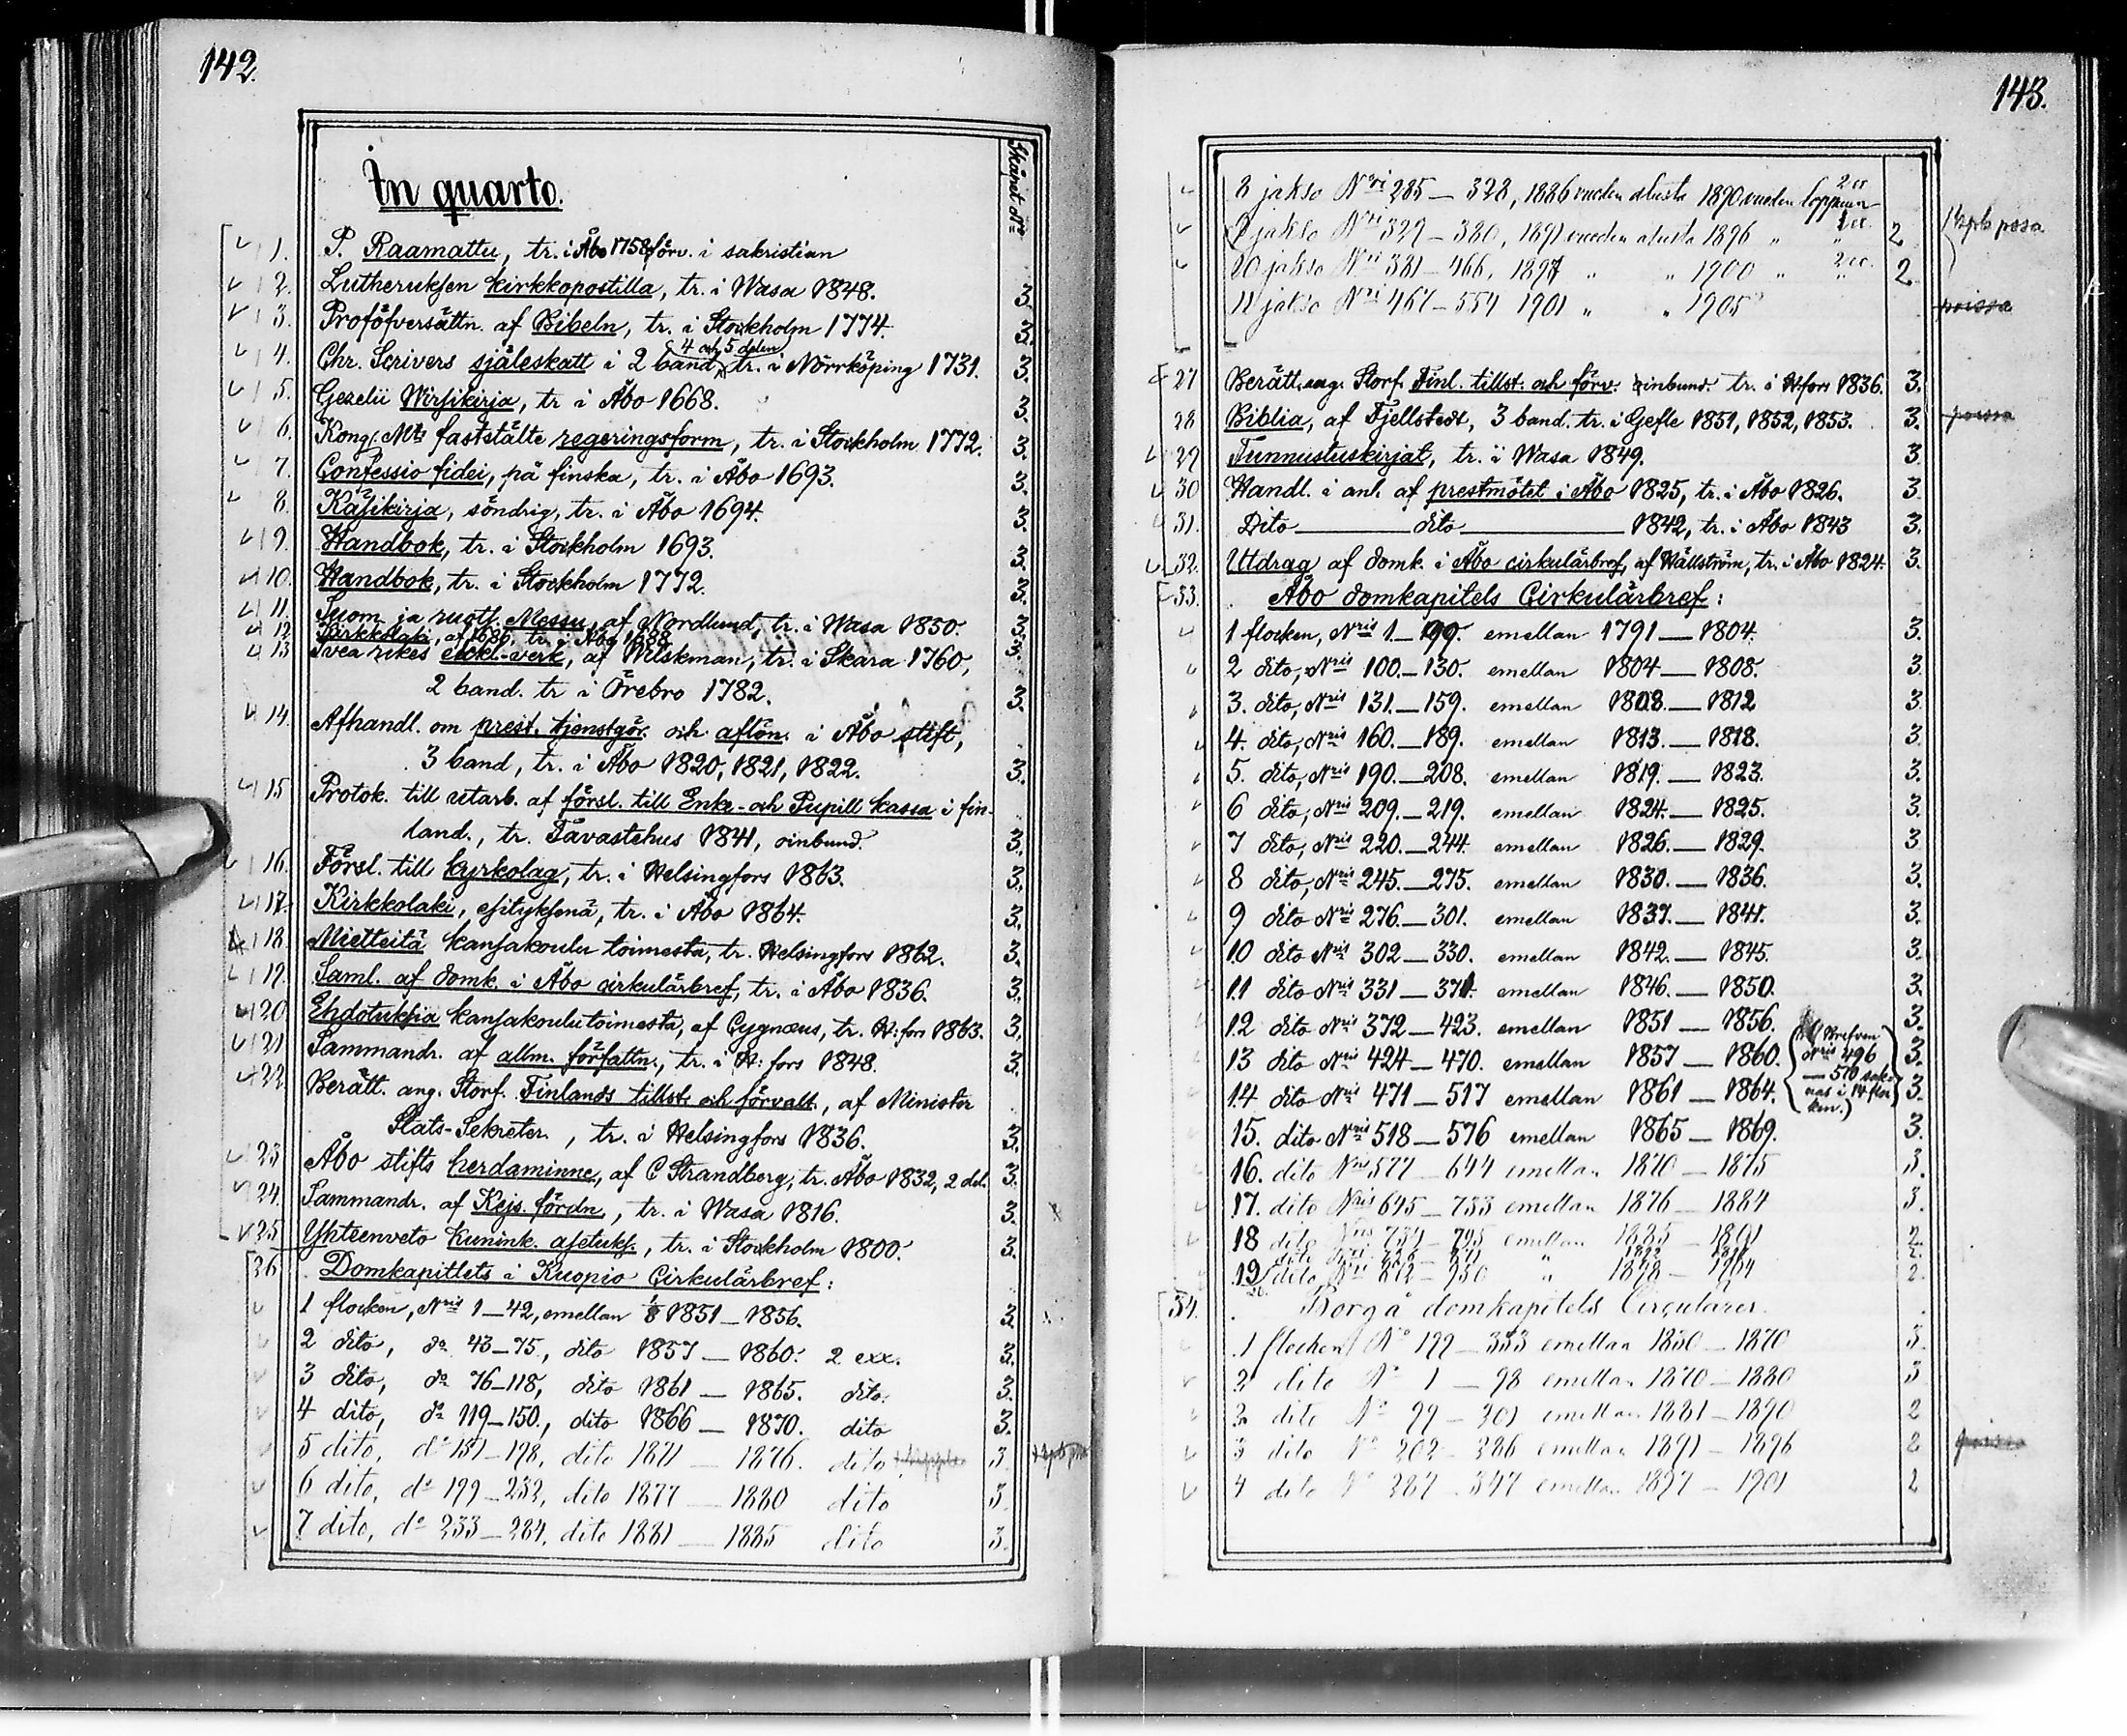 142.
In quarto.
Skåpet No
1. P. Raamattu, tr. i Åbo 1758 förv. i sakristian
2. Lutheruksen kirkkopostilla, tr. i Wasa 1848. 3.
3. Proföfversättn. af Bibeln, tr. i Stockholm 1774. 3.
4 och 5 delen
4. Chr. Scrivers själeskatt i 2 band, tr. i Norrköping 1731. 3.
5. Gezelii Wirsikirja, tr i Åbo 1668. 3.
6. Kongl. Mts faststälte regeringsform, tr. i Stockholm 1772. 3.
7. Confessio fidei, på finska, tr. i Åbo 1693. 3.
8. Käsikirja, söndrig, tr. i Åbo 1694. 3.
9. Handbok, tr. i Stockholm 1693. 3.
10. Handbok, tr. i Stockholm 1772. 3.
11. Suom. ja ruots. Messu, af Nordlund, tr. i Wasa 1850. 3.
12. Kirkkolaki, af 1686, tr. i Åbo 1688. 3.
13 Svea rikes eckl.-verk, af Wilskman, tr. i Skara 1760,
2 band. tr i Örebro 1782. 3.
14. Afhandl. om prest. tjenstgör. och aflön. i Åbo stift,
3 band, tr. i Åbo 1820, 1821, 1822. 3.
15 Protok. till utarb. af försl. till Enke- och Pupill kassa i fin-
land., tr. Tavastehus 1841, oinbund. 3.
16. Försl. till kyrkolag, tr. i Helsingfors 1863. 3.
17. Kirkkolaki, esityksenä, tr. i Åbo 1864. 3.
18. Mietteitä kansakoulu toimesta, tr. Helsingfors 1862. 3.
19. Saml. af domk. i Åbo cirkulärbref, tr. i Åbo 1836. 3.
20 Ehdotuksia kansakoulutoimesta, af Cygnæus, tr. H:fors 1863. 3.
21 Sammandr. af allm. författn., tr. i H:fors 1848. 3.
22. Berätt. ang. Storf. Finlands tillst. och förvalt., af Minister
Stats-Sekreter., tr. i Helsingfors 1836. 3.
23 Åbo stifts herdaminne, af C Strandberg, tr. Åbo 1832, 2 del. 3.
24. Sammandr. af Kejs. fördn., tr. i Wasa 1816. 3.
25 Yhteenveto kunink. asetuks., tr. i Stockholm 1800. 3.
26 Domkapitlets i Kuopio Cirkulärbref:
1 flocken, Nris 1–42, emellan 1851–1856. 3.
2 dito, do 43–75, dito 1857–1860. 2 exx. 3.
3 dito, do 76–118, dito 1861–1865. dito. 3.
4 dito, do 119–150., dito 1866–1870. dito 3.
5 dito, do 151–198, dito 1871–1876. dito 3.
6 dito, do 199–232, dito 1877–1880 dito 3.
7 dito, do 233–284, dito 1881–1885 dito 3.
143.
8 jakso Nri 285–328, 1886 vuoden alusta 1890 vuoden loppuun
9 jakso Nri 329–380, 1891 vuoden alusta 1896 " " 2
10 jakso Nri 381–466, 1897 " " 1900 " " 2
11 jakso Nri 467–554 1901 " " 1905
poissa
27 Berätt. ang. Storf. Finl. tillst. och förv. oinbund. tr. i H:fors 1836. 3.
28 Biblia, af Fjellstedt, 3 band. tr. i Gefle 1851, 1852, 1853. 3. poissa
29 Tunnustuskirjat, tr. i Wasa 1849. 3.
30 Handl. i anl. af prestmötet i Åbo 1825, tr. i Åbo 1826. 3.
31. Dito dito 1842, tr. i Åbo 1843 3.
32. Utdrag af domk. i Åbo cirkulärbref, af Hällström, tr. i Åbo 1824. 3.
33. Åbo domkapitels Cirkulärbref:
1 flocken, Nris 1–99. emellan 1791–1804. 3.
2 dito, Nris 100.–130. emellan 1804–1808. 3.
3. dito, Nris 131.–159. emellan 1808.–1812 3.
4. dito, Nris 160.–189. emellan 1813.–1818. 3.
5. dito, Nris 190.–208. emellan 1819.–1823. 3.
6 dito, Nris 209.–219. emellan 1824.–1825. 3.
7 dito, Nris 220.–244. emellan 1826.–1829. 3
8 dito, Nris 245.–275. emellan 1830.–1836. 3.
9 dito Nris 276.–301. emellan 1837.–1841. 3.
10 dito Nris 302–330. emellan 1842.–1845. 3.
11 dito Nris 331–371. emellan 1846.–1850. 3.
12 dito Nris 372–423. emellan 1851–1856. 3.
13 dito Nris 424–470. emellan 1857–1860. 3.
14 dito Nris 471–517 emellan 1861–1864. 3.
brefven
Nris 496
–510 sak-
nas i 14 floc-
ken.)
15. dito Nris 518–576 emellan 1865–1869. 3.
16. dito Nris 577–644 emellan 1870–1875 3.
17. dito Nris 645–733 emellan 1876–1884 3.
18 dito Nris 734–795 emellan 1885–1891 2.
19 dito
34. Borgå domkapitels Circulärer.
1 flocken No 199–333 emellan 1850–1870 3
2 dito No 1–98 emellan 1870–1880 3
3 dito No 99–201 emellan 1881–1890 2
3 dito No 202–286 emellan 1891–1896 2
4 dito No 287–347 emellan 1897–1901 2